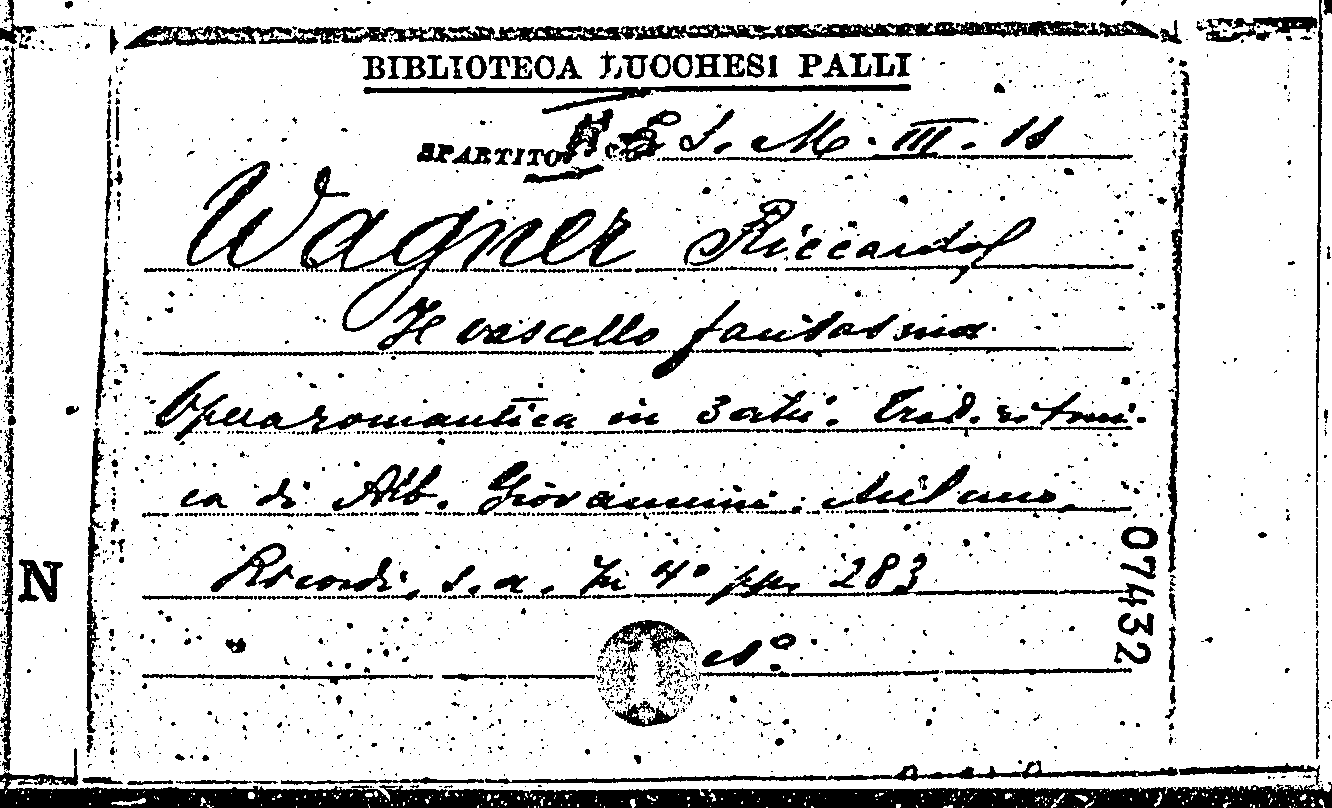 BIBLIOTECA LUCCHESI PALLI
SPARTITO S. M. III. 11
Wagner Riccardo
Il vascello fantasma
Opera romantica in 3 atti. Trad. ritmi-
ca di Alb. Giovannini. Milano,
Ricordi, s. a. In 4° pp. 283
N°
N
07432